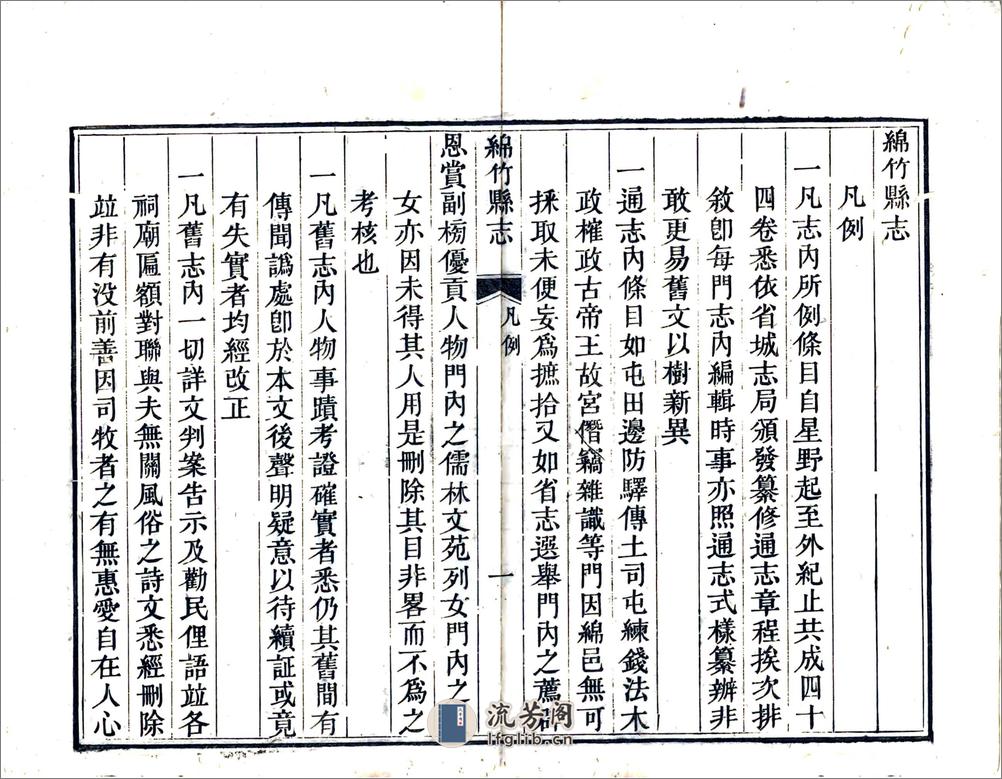 綿竹縣志
凡例
一凡志內所例條目自星野起至外紀止共成四十
四卷悉依省城志局頒發纂修通志章程挨次排
敘卽每門志內編輯時事亦照通志式樣纂辨非
敢更易舊文以樹新異
一通志內條目如屯田邊防驛傳土司屯練錢法木
政榷政古帝王故宮僭竊雜識等門因綿邑無可
採取未便妄爲摭拾又如省志選舉門內之薦辟
綿竹縣志
凡例
一
恩賞副榜優貢人物門內之儒林文苑列女門內之
女亦因未得其人用是刪除其目非畧而不爲之
考核也
一凡舊志內人物事蹟考證確實者悉仍其舊間有
傳聞譌處卽於本文後聲明疑意以待續証或竟
有失實者均經改正
一凡舊志內一切詳文判案告示及勸民俚語竝各
祠廟匾額對聯與夫無關風俗之詩文悉經刪除
竝非有没前善因司牧者之有無惠愛自在人心
流芳阁
lfglib.cn